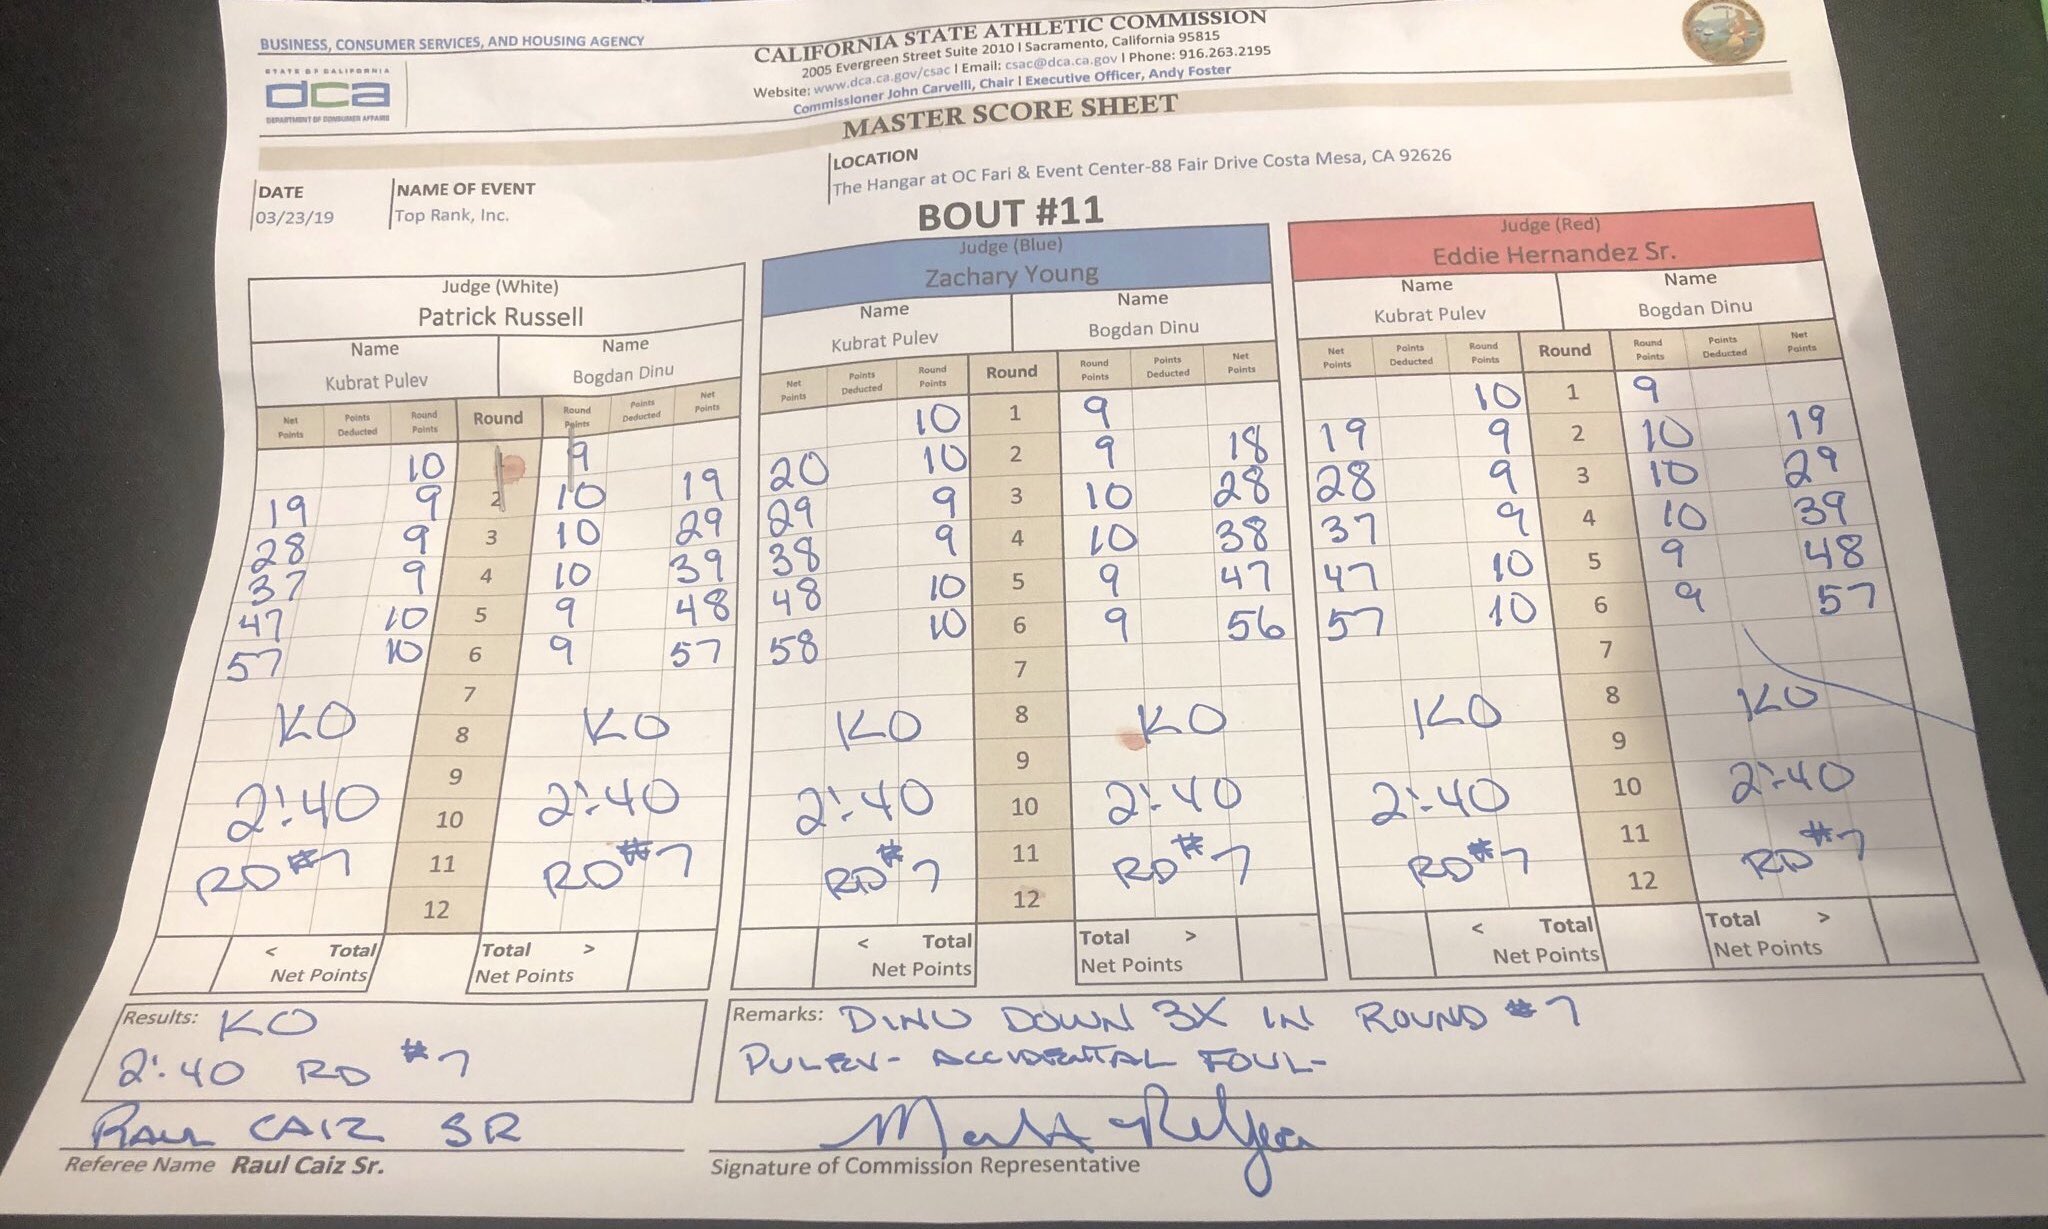 BUSINESS, CONSUMER SERVICES, AND HOUSING AGENCY
STATE OF CALIFORNIA
dca
DEPARTMENT OF CONSUMER AFFAIRS
CALIFORNIA STATE ATHLETIC COMMISSION
2005 Evergreen Street Suite 2010 I Sacramento, California 95815
Website: www.dca.ca.gov/csac I Email: csac@dca.ca.gov I Phone: 916.263.2195
Commissioner John Carvelli, Chair I Executive Officer, Andy Foster
MASTER SCORE SHEET
DATE
03/23/19
NAME OF EVENT
Top Rank, Inc.
LOCATION
The Hangar at OC Fari & Event Center-88 Fair Drive Costa Mesa, CA 92626
BOUT #11
Judge (White)
Patrick Russell
Name Name
Kubrat Pulev Bogdan Dinu
Net Points Points Deducted Round Points Round Round Points Points Deducted Net Points
10 9
19 9 2 10 19
28 9 3 10 29
37 9 4 10 39
47 10 5 9 48
57 10 6 9 57
7
KO 8 KO
9
2:40 10 2:40
RD #7 11 RD #7
12
< Total Total >
Net Points Net Points
Judge (Blue)
Zachary Young
Name Name
Kubrat Pulev Bogdan Dinu
Net Points Points Deducted Round Points Round Round Points Points Deducted Net Points
10 1 9
20 10 2 9 18
29 9 3 10 28
38 9 4 10 38
48 10 5 9 47
58 10 6 9 56
7
KO 8 KO
9
2:40 10 2:40
RD #7 11 RD #7
12
< Total Total >
Net Points Net Points
Judge (Red)
Eddie Hernandez Sr.
Name Name
Kubrat Pulev Bogdan Dinu
Net Points Points Deducted Round Points Round Round Points Points Deducted Net Points
10 1 9
19 9 2 10 19
28 9 3 10 29
37 9 4 10 39
47 10 5 9 48
57 10 6 9 57
7
KO 8 KO
9
2:40 10 2:40
RD #7 11 RD #7
12
< Total Total >
Net Points Net Points
Results: KO
2:40 RD #7
Remarks: DINU DOWN 3X IN ROUND #7
PULEV- ACCIDENTAL FOUL-
RAUL CAIZ SR
Referee Name Raul Caiz Sr.
Signature of Commission Representative